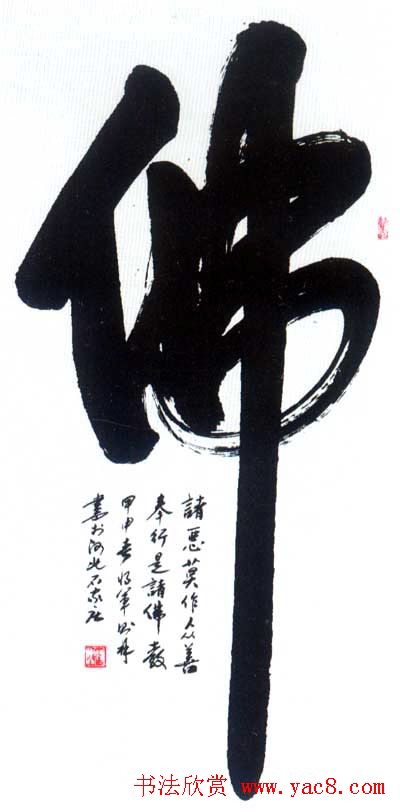 佛
諸惡莫作眾善
奉行是諸佛教
甲申春将軍
書於河北石家庄
书法欣赏 www.yac8.com